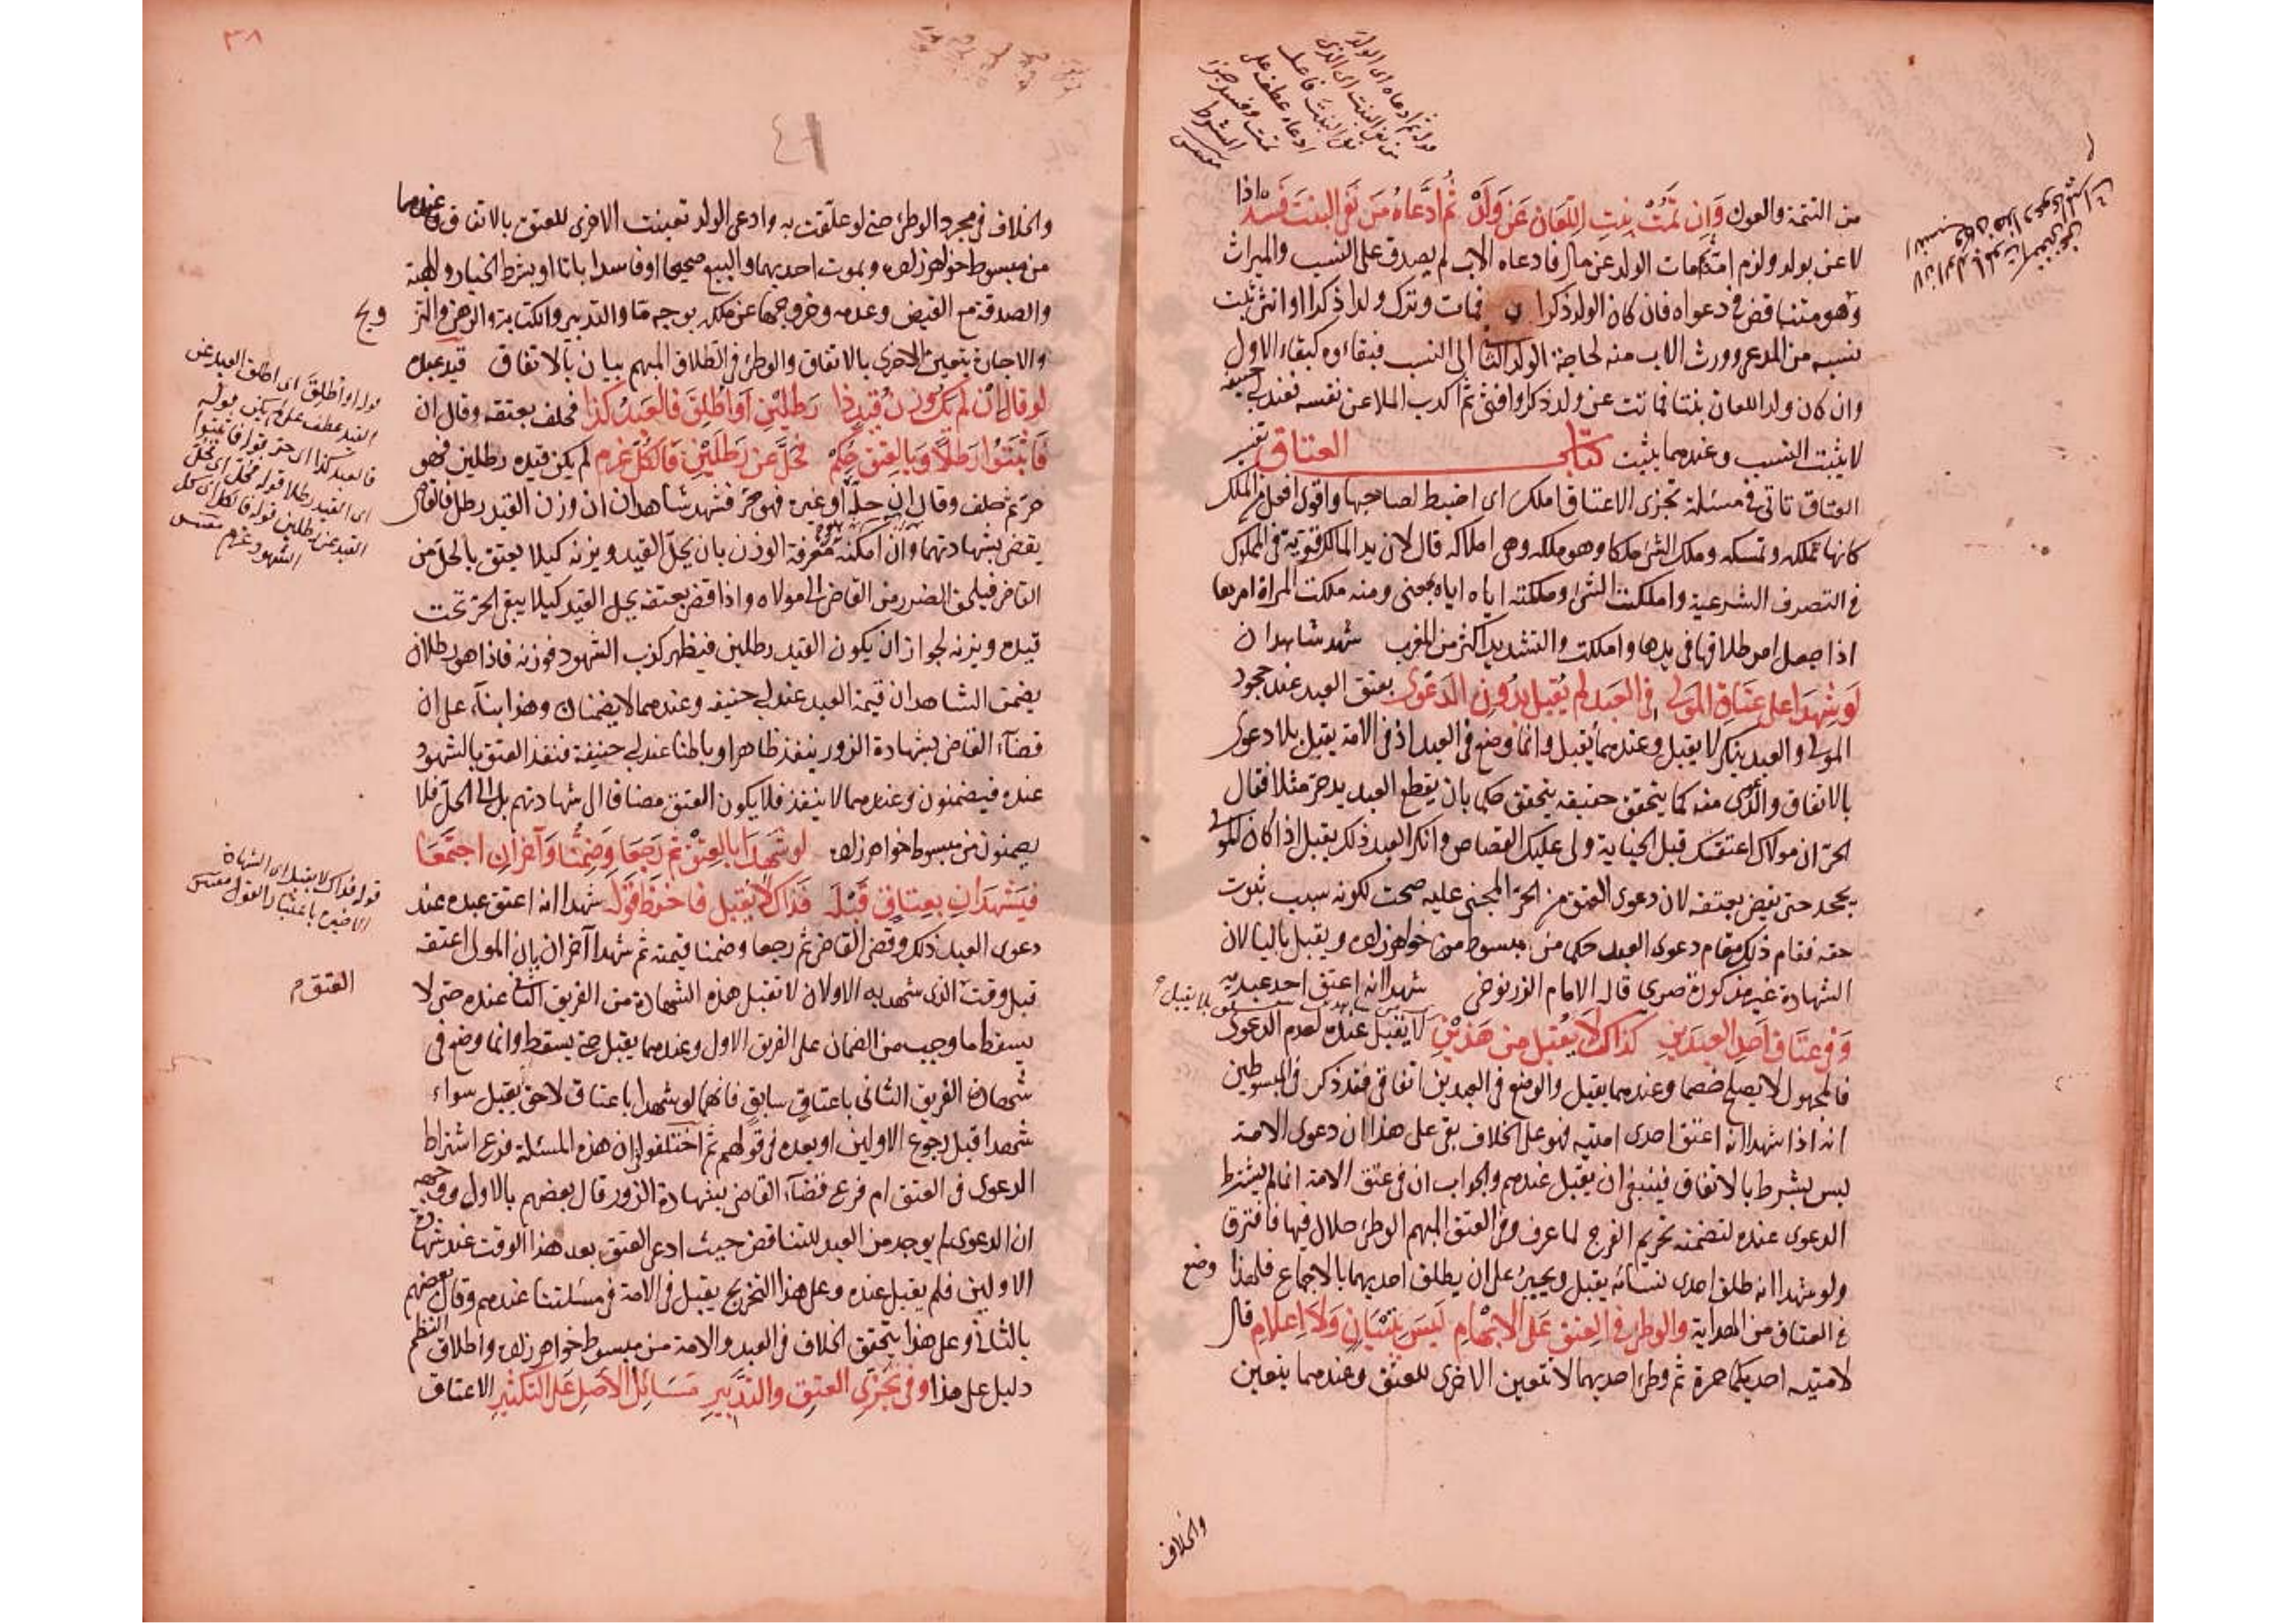 من التتمة والعون وَاِنْ تَمُتْ بِنتِ اللِّعَانِ عَنْ وَلَدْ ثُمَّ ادَّعَاهُ مَنْ نَفَى البنتَ فَسَدْ اذا
لاعن بولد ولزم امه ثم مات الولد عن مال فادعاه الاب لم يصدق على النسب والميراث
وهو متناقض في دعواه فان كان الولد ذكرا فمات وترك ولدا ذكرا او انثى ثبت
نسبه من المدعي وورث الاب منه لحاجة الولد الثاني الى النسب فبقاءوه كبقاء الاول
وان كان ولد اللعان بنتا فماتت عن ولد ذكر او انثى ثم اكذب الملاعن نفسه فعند ابي حنيفة
لا يثبت النسب وعندهما يثبت كتاب العتاق تفسير
العتاق تاتي في مسئلة تجزي الاعتاق املك اى اضبط لصاحبها واقوى افعل من الملك
كانها تملكه وتمسكه وملك الشئ ملكا وهو ملكه وهي املاكه قال لان يد المالك قوية في المملوك
في التصرف الشرعية واملكت الشئ وملكته اياه اياه بمعنى ومنه ملكت المراة امرها
اذا جعل امر طلاقها في يدها واملكت والتشديد اكثر من المغرب شهد شاهدان
لَوْ شَهِدَا على عَتَاقِ المَولى في العَبدِ لم يُقبل بدُونِ الدعوى بعتق العبد عند جحود
المولى والعبد ينكر لا يقبل وعندهما يقبل وانما وضع في العبد اذ في الامة يقبل بلا دعوى
بالاتفاق والدعوى منه كما يتحقق حقيقة يتحقق حكما بان يقطع العبد يد حر مثلا فقال
الحر ان مولاك اعتقك قبل الجناية ولي عليك القصاص وانكر العبد ذلك يقبل اذا كان المولى
يجحد حتى يقضي بعتقه لان دعوى العتق من الحر المجني عليه صحت لكونه سبب ثبوت
حقه فقام ذلك مقام دعوى العبد حكما من مبسوط خواهر زاده ويقبل بالياء لان
الشهادة غير مذكورة صريح قاله الامام الزرنوخي شهدا انه اعتق احد عبديه
وَفي عتَاقِ اَحدِ العَبدَينِ كذاك لا يُقبل من هَذَيْنِ لا يقبل عنده لعدم الدعوى
فالمجهول لا يصلح خصما وعندهما يقبل والوضع في العبدين اتفاقي فقد ذكر في المبسوطين
انه اذا شهدا انه اعتق احدى امتيه فهو على الخلاف بقي على هذا ان دعوى الامة
ليس بشرط بالاتفاق فينبغي ان يقبل عندهم والجواب ان في عتق الامة انما لم يشترط
الدعوى عنده لتضمنه تحريم الفرج لما عرف وفي العتق المبهم الوطئ حلال فيها فافترق
ولو شهدا انه طلق احدى نسائه يقبل ويجبر على ان يطلق احديهما بالاجماع فلهذا وضع
في العتاق من الهداية والوطئ في العِتقِ عَلى الابهامِ لَيسَ بتبيَانٍ وَلا اِعلامِ قال
لامتيه احديكما حرة ثم وطئ احديهما لا تتعين الاخرى للعتق وعندهما يتعين
والخلاف
٣٨
٤١
والخلاف في مجرد الوطئ حتى لو علقت به وادعى الولد تعينت الاخرى للعتق بالاتفاق وعندهما
من مبسوط خواهر زاده وبموت احديهما والبيع صحيحا او فاسدا باتا او بشرط الخيار والهبة
والصدقة مع القبض وعدمه وخروجها عن ملكه بوجه ما والتدبير والكتابة والرهن والتز
ويج
والاجارة يتعين الاخرى بالاتفاق والوطئ في الطلاق المبهم بيان بالاتفاق قيد عبده
لو قال ان لم يكن وزن قيد ذا رطلين او اُطلِقَ فالعبدُ كذا فحلف بعتقه وقال ان
فَاثبَتُوا رَطلاً وَبالعِتقِ حُكِمْ فحُلَّ عن رَطلَيْنِ فَالكُلُّ غَرِم لم يكن قيده رطلين فهو
حر ثم حلف وقال ان حله او غيره فهو حر فشهد شاهدان ان وزن القيد رطل فالقاضي
يقضي بشهادتهما وان امكنه معرفة الوزن بان يحل القيد ويزنه كيلا يعتق بالحل من
القاضي فيلحق الضرر من القاضي الى مولاه واذا قضى بعتقه يحل القيد كيلا يبقى الحر تحت
قيده ويزنه لجواز ان يكون القيد رطلين فيظهر كذب الشهود فوزنه فاذا هو رطلان
يضمن الشاهدان قيمة العبد عند ابي حنيفة وعندهما لا يضمنان وهذا بناء على ان
قضاء القاضي بشهادة الزور ينفذ ظاهرا وباطنا عند ابي حنيفة فنفذ العتق بالشهود
عنده فيضمنون وعندهما لا ينفذ فلا يكون العتق مضافا الى شهادتهم بل الى الحل فلا
يضمنون من مبسوط خواهر زاده لو شَهِدَا بالعِتقِ ثم رَجَعَا وَضُمِّنَا وَآخرَانِ اجتَمَعَا
فيَشهَدَانِ بعِتاقٍ قَبْلَهُ فَذَاكَ لا يُقبل فاحفَظ قَولَهُ شهدا انه اعتق عبده عند
دعوى العبد ذلك وقضى القاضي ثم رجعا وضمنا قيمته ثم شهدا آخران بان المولى اعتقه
قبل وقت الذي شهد به الاولان لا تقبل هذه الشهادة من الفريق الثاني عنده حتى لا
يسقط ما وجب من الضمان على الفريق الاول وعندهما يقبل حتى يسقط وانما وضع في
شهادة الفريق الثاني باعتاق سابق فانهما لو شهدا باعتاق لاحق يقبل سواء
شهدا قبل رجوع الاولين او بعده في قولهم ثم اختلفوا ان هذه المسئلة فرع اشتراط
الدعوى في العتق ام فرع قضاء القاضي بشهادة الزور قال بعضهم بالاول ووجهه
ان الدعوى لم يوجد من العبد للتناقض حيث ادعى العتق بعد هذا الوقت عند شهادة
الاولين فلم يقبل عنده وعلى هذا التخريج يقبل في الامة في مسئلتنا عندهم وقال بعضهم
بالثاني وعلى هذا يتحقق الخلاف في العبد والامة من مبسوط خواهر زاده واطلاق النظم
دليل على هذا وَفي تَجزِّى العِتقِ والتدْبيرِ مَسَائِلُ الاَصلِ عَلى التكثيرِ الاعتاق
قوله او اُطلِقَ اى اطلق العبد عن
القيد عطف على لم يكن قوله
فالعبد كذا اى حر قوله فاثبتوا
اى القيد رطلا قوله فحل اى حل
القيد عن رطلين قوله فالكل اى كل
الشهود غرم
قوله فذاك لا يقبل اى الشهادة
الاخيرة باعتبار القول
العتق م